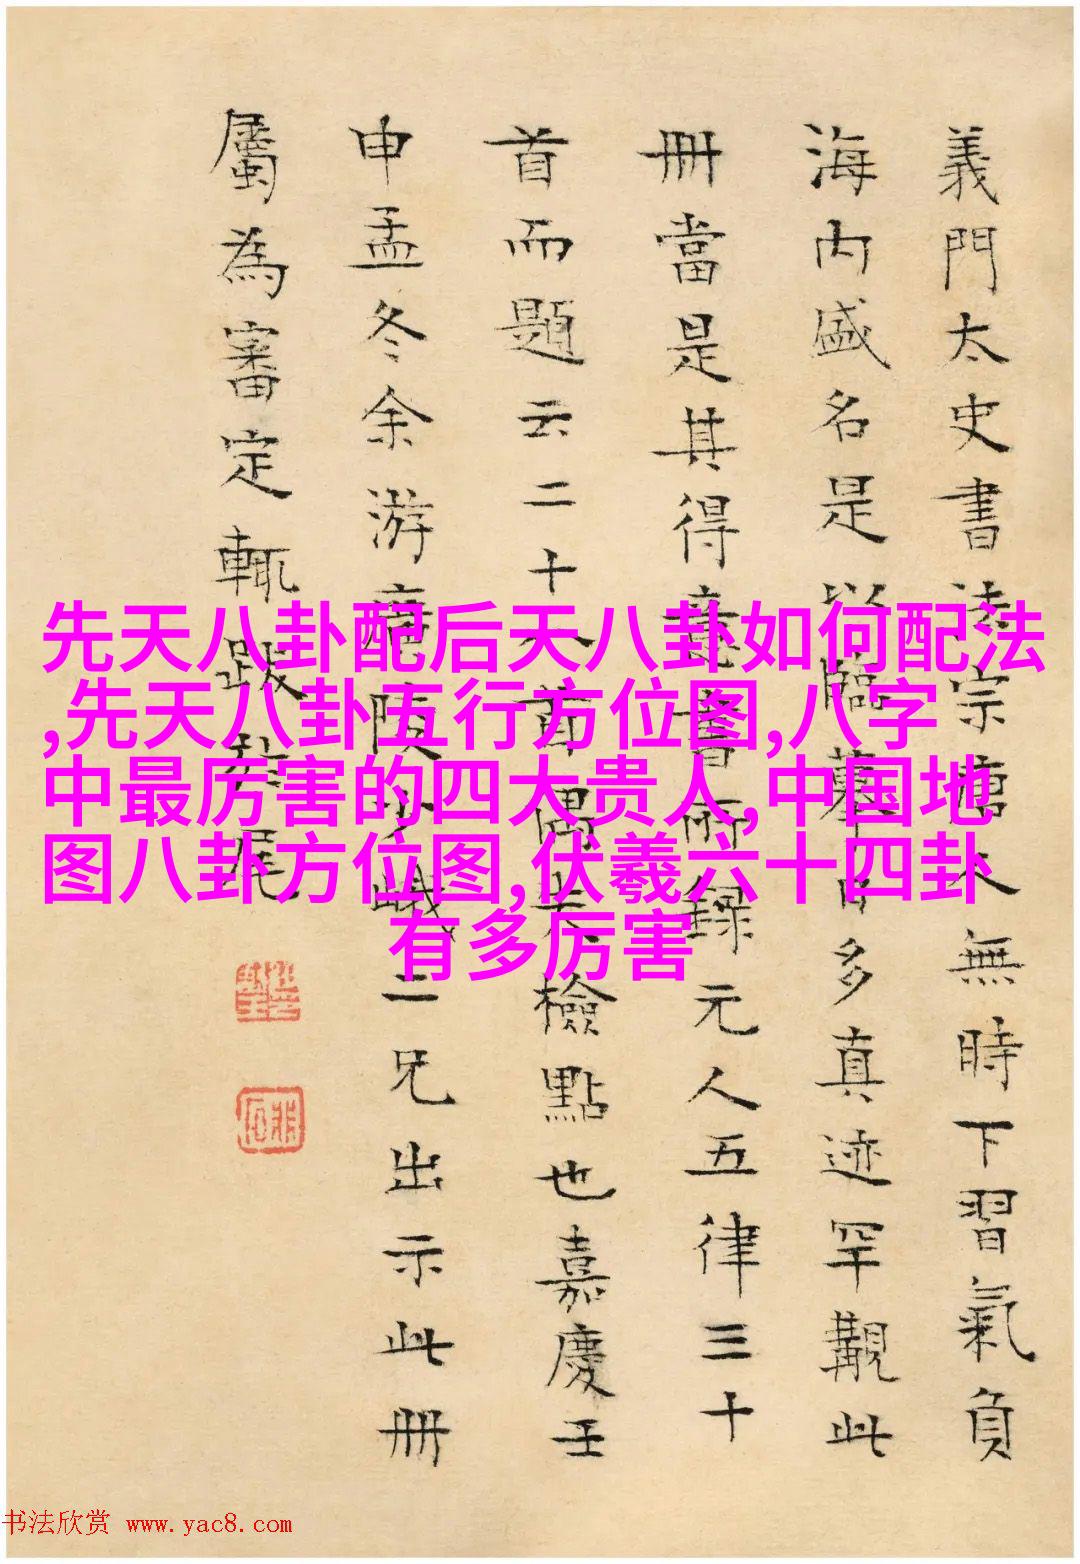 義門太史書法宗唐人無時下習氣負
海内盛名是以臨摹日多真迹罕觏此
冊當是其得意書所録元人五律三十
首而題云二十八首偶失檢點也嘉慶壬
申孟冬余游廣陵少峨二兄出示此冊
屬為審定輒跋於尾
先天八卦配后天八卦如何配法
,先天八卦五行方位图,八字
中最厉害的四大贵人,中国地
图八卦方位图,伏羲六十四卦
有多厉害
书法欣赏 www.yac8.com